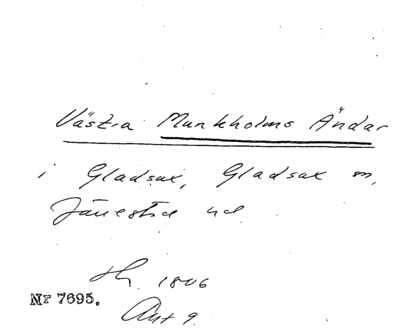 Västra Munkholms Ändar
i Gladsax, Gladsax sn,
Järrestad hd
Sk. 1806
NF 7695.
Akt 9.